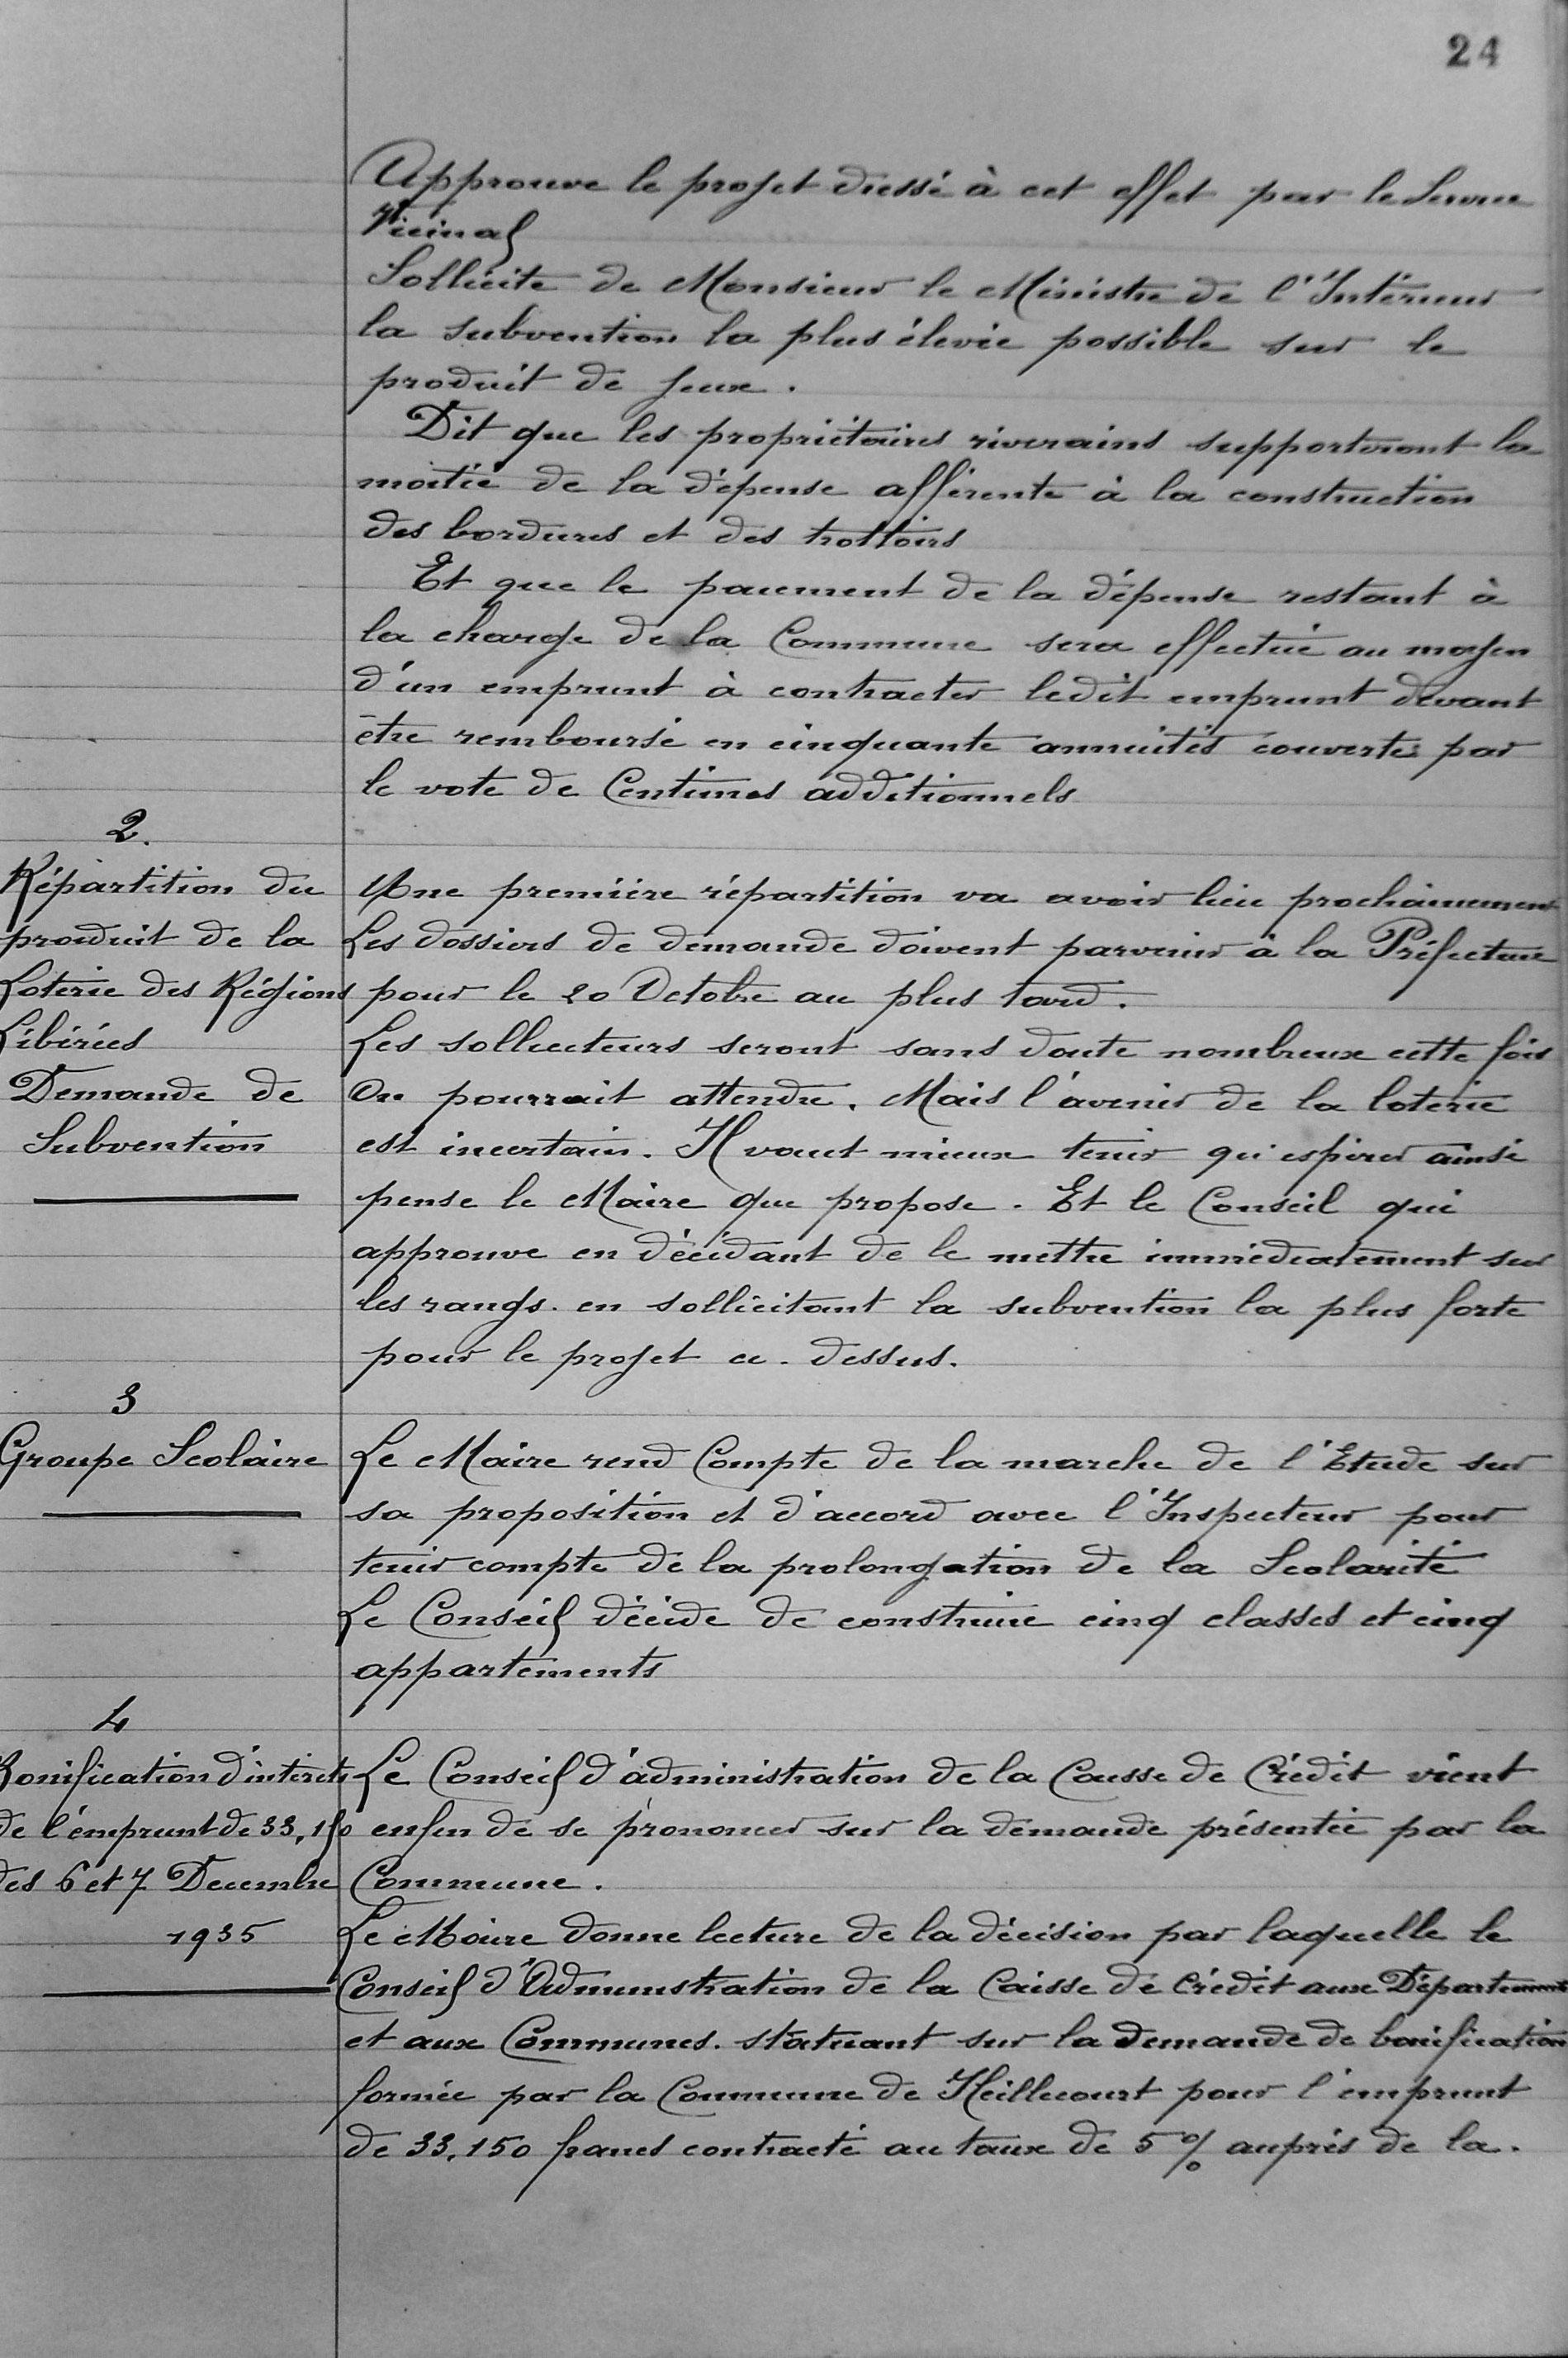 24
Approuve le projet dressé à cet effet par le Service
Vicinal
Sollicite de Monsieur le Ministre de l'Intérieur
la subvention la plus élevée possible sur le
produit de jeux.
Dit que les propriétaires riverains supporteront la
moitié de la dépense afférente à la construction
des bordures et des trottoirs
Et que le paiement de la dépense restant à
la charge de la Commune sera effectué au moyen
d'un emprunt à contracter ledit emprunt devant
être remboursé en cinquante annuités couvertes par
le vote de Centimes additionnels
2.
Répartition du
produit de la
Loterie des Régions
Libérées
Demande de
Subvention
Une première répartition va avoir lieu prochainement
Les dossiers de demande doivent parvenir à la Préfecture
pour le 20 Octobre au plus tard.
Les solliciteurs seront sans doute nombreux cette fois
On pourrait attendre. Mais l'avenir de la loterie
est incertain. Il vaut mieux tenir qu'espérer ainsi
pense le Maire que propose. Et le Conseil qui
approuve en décidant de le mettre immédiatement sur
les rangs. en sollicitant la subvention la plus forte
pour le projet ci-dessus.
3
Groupe Scolaire
Le Maire rend Compte de la marche de l'Etude sur
sa proposition et d'accord avec l'Inspecteur pour
tenir compte de la prolongation de la Scolarité
Le Conseil décide de construire cinq classes et cinq
appartements
4
Bonification d'intérêts
de l'emprunt de 33,150
des 6 et 7 Decembre
1935
Le Conseil d'administration de la Caisse de Crédit vient
enfin de se prononcer sur la demande présentée par la
Commune.
Le Maire donne lecture de la décision par laquelle le
Conseil d'Administration de la Caisse de Crédit aux Départements
et aux Communes. statuant sur la demande de bonification
formée par la Commune de Heillecourt pour l'emprunt
de 33.150 francs contracté au taux de 5% auprès de la.